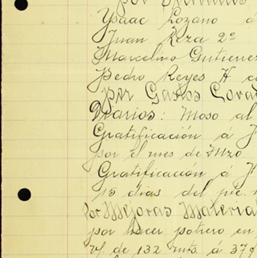 por
Ysaac Lozano
Juan Reza 2º
Marcelino Gutierre
Pedro Reyes H
por Gastos
Diarios: Moso al
Gratificación á J
por el mes de
Gratificacion á
15 dias del
por Mejoras Material
por hacer potrero en
vf. de 132 mts á 37